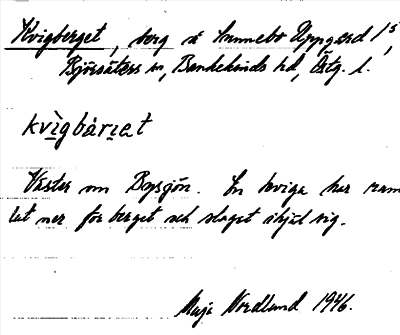 Kvigberget, berg å Sunnebo Uppgård 1⁵,
Björsäters sn, Bankekinds hd, Östg. l.
kvìgbárıet
Väster om Borsjön. En kviga har ram
lat ner för berget och slaget ihjäl sig.
Maja Nordlund 1946.